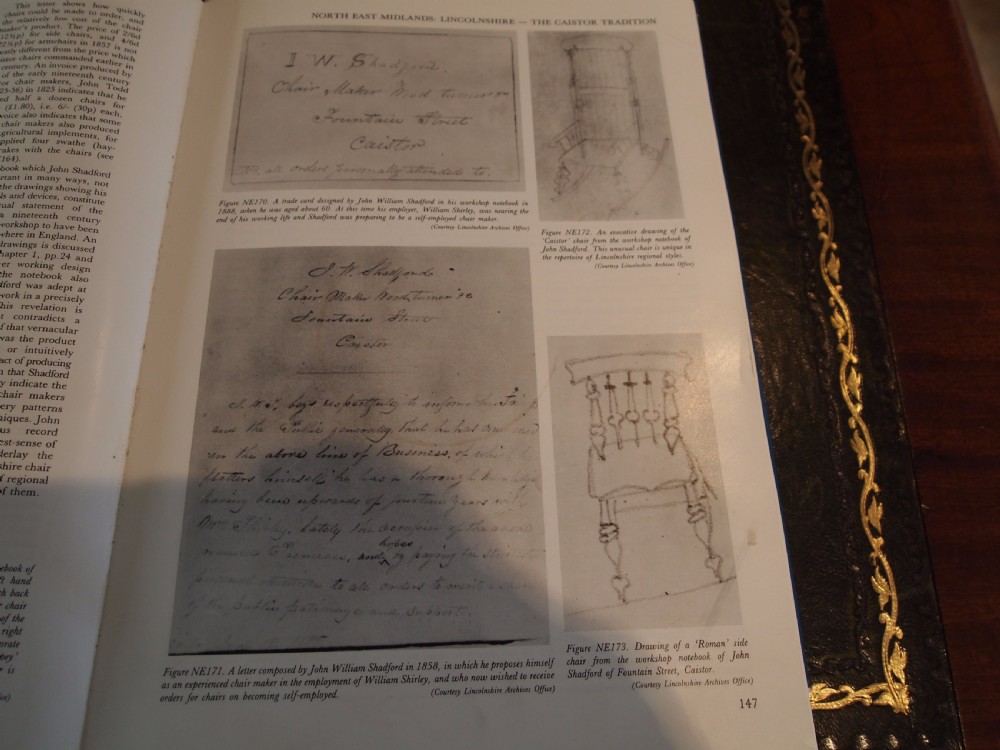 This issue shows how quickly
chairs could be made to order, and
the relatively low cost of the chair
maker's product. The price of 2/6d
(12½p) for side chairs, and 4/6d
22½p) for armchairs in 1857 is not
different from the price which
chairs commanded earlier in
century. An invoice produced by
of the early nineteenth century
chair makers, John Todd
25-36) in 1825 indicates that he
half a dozen chairs for
(£1.80), i.e. 6/- (30p) each.
voice also indicates that some
chair makers also produced
gricultural implements, for
pplied four swathe (hay-
rakes with the chairs (see
164).
book which John Shadford
rtant in many ways, not
the drawings showing his
ls and devices, constitute
ual statement of the
a nineteenth century
workshop to have been
where in England. An
drawings is discussed
hapter 1, pp.24 and
er working design
the notebook also
dford was adept at
work in a precisely
his revelation is
t contradicts a
f that vernacular
was the product
or intuitively
act of producing
n that Shadford
y indicate the
chair makers
ery patterns
niques. John
us record
est-sense of
derlay the
shire chair
f regional
of them.
ebook of
ft hand
h back
chair
of the
right
orate
ey'
is
NORTH EAST MIDLANDS: LINCOLNSHIRE — THE CAISTOR TRADITION
I W. Shadford
Chair Maker Wood turner
Fountain Street
Caistor
all orders personally attended to.
Figure NE170. A trade card designed by John William Shadford in his workshop notebook in
1888, when he was aged about 60. At this time his employer, William Shirley, was nearing the
end of his working life and Shadford was preparing to be a self-employed chair maker.
(Courtesy Lincolnshire Archives Office)
Figure NE172. An evocative drawing of the
'Caistor' chair from the workshop notebook of
John Shadford. This unusual chair is unique in
the repertoire of Lincolnshire regional styles.
(Courtesy Lincolnshire Archives Office)
J. W. Shadford
Chair Maker Wood turner &c
Fountain Street
Caistor
J. W. S. begs respectfully to inform
and the Public generally, that he has
in the above line of Business, of
flatters himself he has a thorough
having been upwards of fourteen years
Mr Shirley, lately the occupier of the above
Premises, and hopes by paying
to all orders to merit a
of the public patronage and support.
Figure NE171. A letter composed by John William Shadford in 1858, in which he proposes himself
as an experienced chair maker in the employment of William Shirley, and who now wished to receive
orders for chairs on becoming self-employed.
(Courtesy Lincolnshire Archives Office)
Figure NE173. Drawing of a 'Roman' side
chair from the workshop notebook of John
Shadford of Fountain Street, Caistor.
(Courtesy Lincolnshire Archives Office)
147